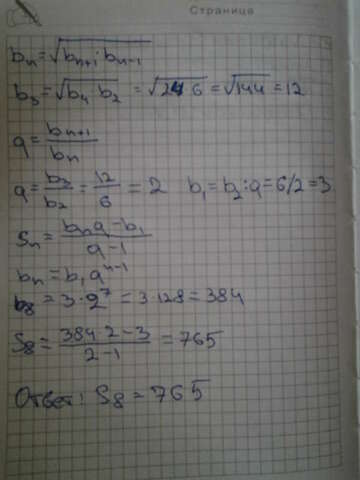 Страница
bₙ=√(bₙ₊₁·bₙ₋₁)
b₃=√(b₄ b₂)=√(24 6)=√144=12
q=bₙ₊₁/bₙ
q=b₃/b₂=12/6=2 b₁=b₂:q=6/2=3
Sₙ=(bₙq-b₁)/(q-1)
bₙ=b₁qⁿ⁻¹
b₈=3·2⁷=3·128=384
S₈=(384·2-3)/(2-1)=765
Ответ: S₈=765